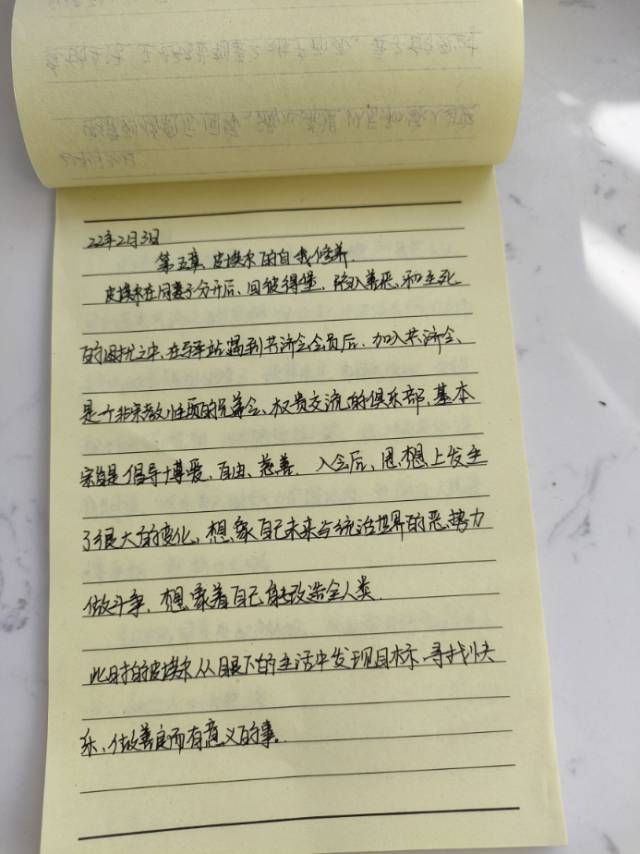 22年2月3日
第五章、皮埃尔的自我修养.
皮埃尔在同妻子分开后、回彼得堡、陷入善恶、和生死
的困扰之中、在驿站遇到共济会会员后、加入共济会、
是一个非宗教性质的兄弟会、权贵交流的俱乐部、基本
宗旨是倡导博爱、自由、慈善. 入会后、思想上发生
了很大的变化、想象自己未来与统治世界的恶势力
做斗争、想象着自己能改造全人类.
此时的皮埃尔从眼下的生活中发现目标、寻找快
乐、做善良而有意义的事.